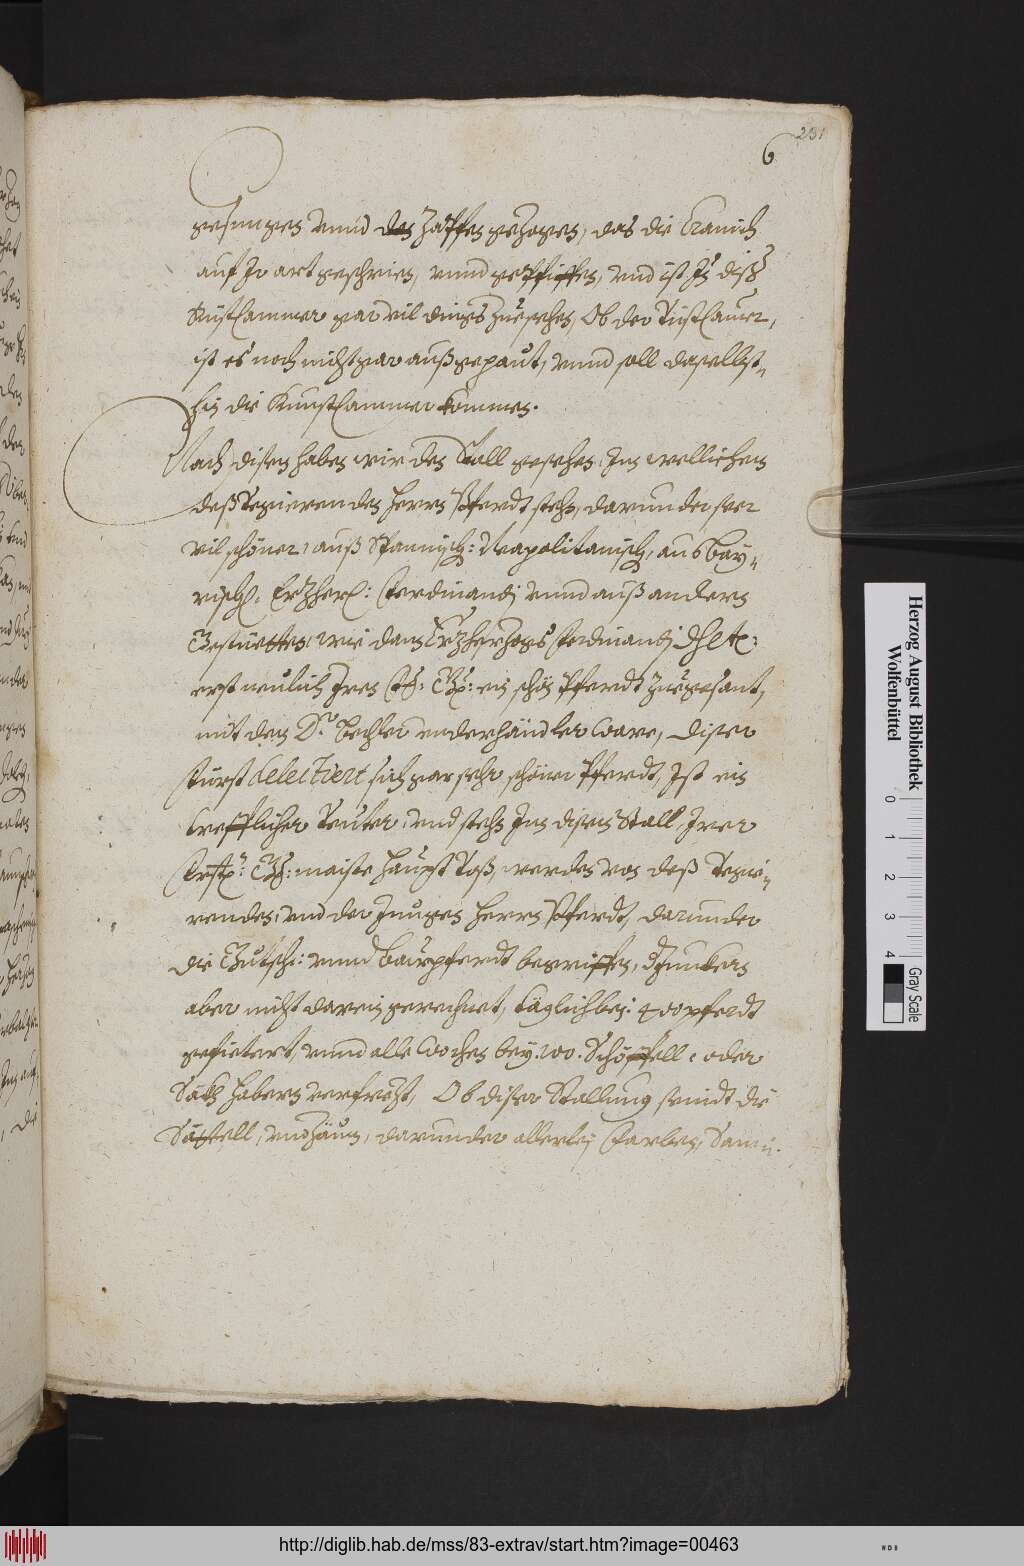 231
6
gesungen unnd den Zapffen gezogen, das die Cranich
auf Ir art geschrien, unnd gepfiffen, und ist In diser
Rüstcammer gar vil dings zuesehen, Ob der Rüstcamer,
ist es noch nicht gar außgepaut, unnd soll daselbst-
hin die Kunstcammer kommen.
Nach disen haben wir den Stall gesehen, Inn wellichem
deß Regierenden Herrn Pferdt stehn, darunder seer
vil schöner, auß Spannisch: Neapolitanisch, aus Bay-
risch, Erzher: Ferdinandj unnd auß andern
Gestuetten, wie dann Erzherzogs Ferdinandj
erst neulich Iren ein schön Pferdt zuegesant,
mit dem D. underhändler ware, diser
Fürst delectiert sich gar sehr schöner Pferdt, Ist ein
treffflicher Reuter, und stehn Inn disem Stall, Irer
maiste Haupt Roß, werden von deß Regie-
renden, und der Jungen Herrn Pferdt, darunder
die Gutschi: unnd Baurpferdt begriffen, d Junckern
aber nicht darein gerechnet, täglich bej. 400 pferdt
gefietert, unnd alle Wochen bey. 100. Schöpffell, oder
Säckh Habern verfrözt, Ob diser Stallung seindt die
Sättell, und Zäum, darunder allerlej Farben, Samm.
Herzog August Bibliothek
Wolfenbüttel
0 1 2 3 4
Gray Scale
http://diglib.hab.de/mss/83-extrav/start.htm?image=00463